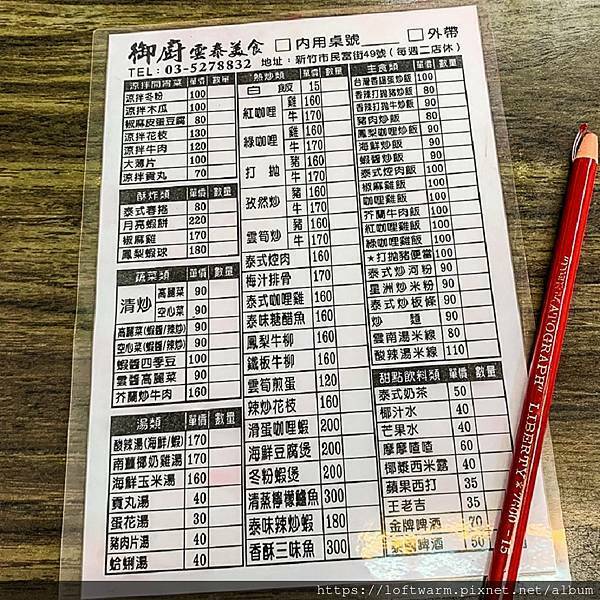 御廚 雲泰美食 □內用桌號 □外帶
TEL:03-5278832 地址:新竹市民富街49號(每週二店休)
涼拌開胃菜 單價 數量
涼拌冬粉 100
涼拌木瓜 100
椒麻皮蛋豆腐 80
涼拌花枝 130
涼拌牛肉 120
大薄片 100
涼拌貢丸 70
酥炸類 單價 數量
泰式春捲 80
月亮蝦餅 220
椒麻雞 170
鳳梨蝦球 180
蔬菜類 單價 數量
清炒 高麗菜 90
空心菜 90
高麗菜(蝦醬/辣炒) 90
空心菜(蝦醬/辣炒) 90
蝦醬四季豆 100
雲醬高麗菜 90
芥蘭炒牛肉 160
湯類 單價 數量
酸辣湯(海鮮/蝦) 170
南薑椰奶雞湯 170
海鮮玉米湯 160
貢丸湯 40
蛋花湯 30
豬肉片湯 40
蛤蜊湯 40
熱炒類 單價 數量
白飯 15
紅咖哩 雞 160
牛 170
綠咖哩 雞 160
牛 170
打拋 豬 160
牛 170
孜然炒 豬 160
牛 170
雲筍炒 豬 160
牛 170
泰式焢肉 160
梅汁排骨 170
泰式咖哩雞 160
泰味糖醋魚 160
鳳梨牛柳 160
鐵板牛柳 160
雲筍煎蛋 120
辣炒花枝 160
滑蛋咖哩蝦 200
海鮮豆腐煲 200
冬粉蝦煲 200
清蒸檸檬鱸魚 300
泰味辣炒蝦 180
香酥三味魚 300
主食類 單價 數量
台灣香腸蛋炒飯 100
香辣打拋豬炒飯 90
香辣打拋牛炒飯 100
豬肉炒飯 80
鳳梨咖哩炒飯 90
海鮮炒飯 90
蝦醬炒飯 90
泰式焢肉飯 100
椒麻雞飯 90
咖哩雞飯 90
芥蘭牛肉飯 90
紅咖哩雞飯 90
綠咖哩雞飯 90
★打拋豬便當 90
泰式炒河粉 90
星洲炒米粉 90
泰式炒板條 90
炒麵 90
雲南湯米線 80
酸辣湯米線 110
甜點飲料類 單價 數量
泰式奶茶 50
椰汁水 40
芒果水 40
摩摩喳喳 60
椰漿西米露 40
蘋果西打 35
王老吉 35
金牌啤酒 70
泰國啤酒 50
"DERMATOGRAPH" LIBERTY * 7600-15
https://loftwarm.pixnet.net/album